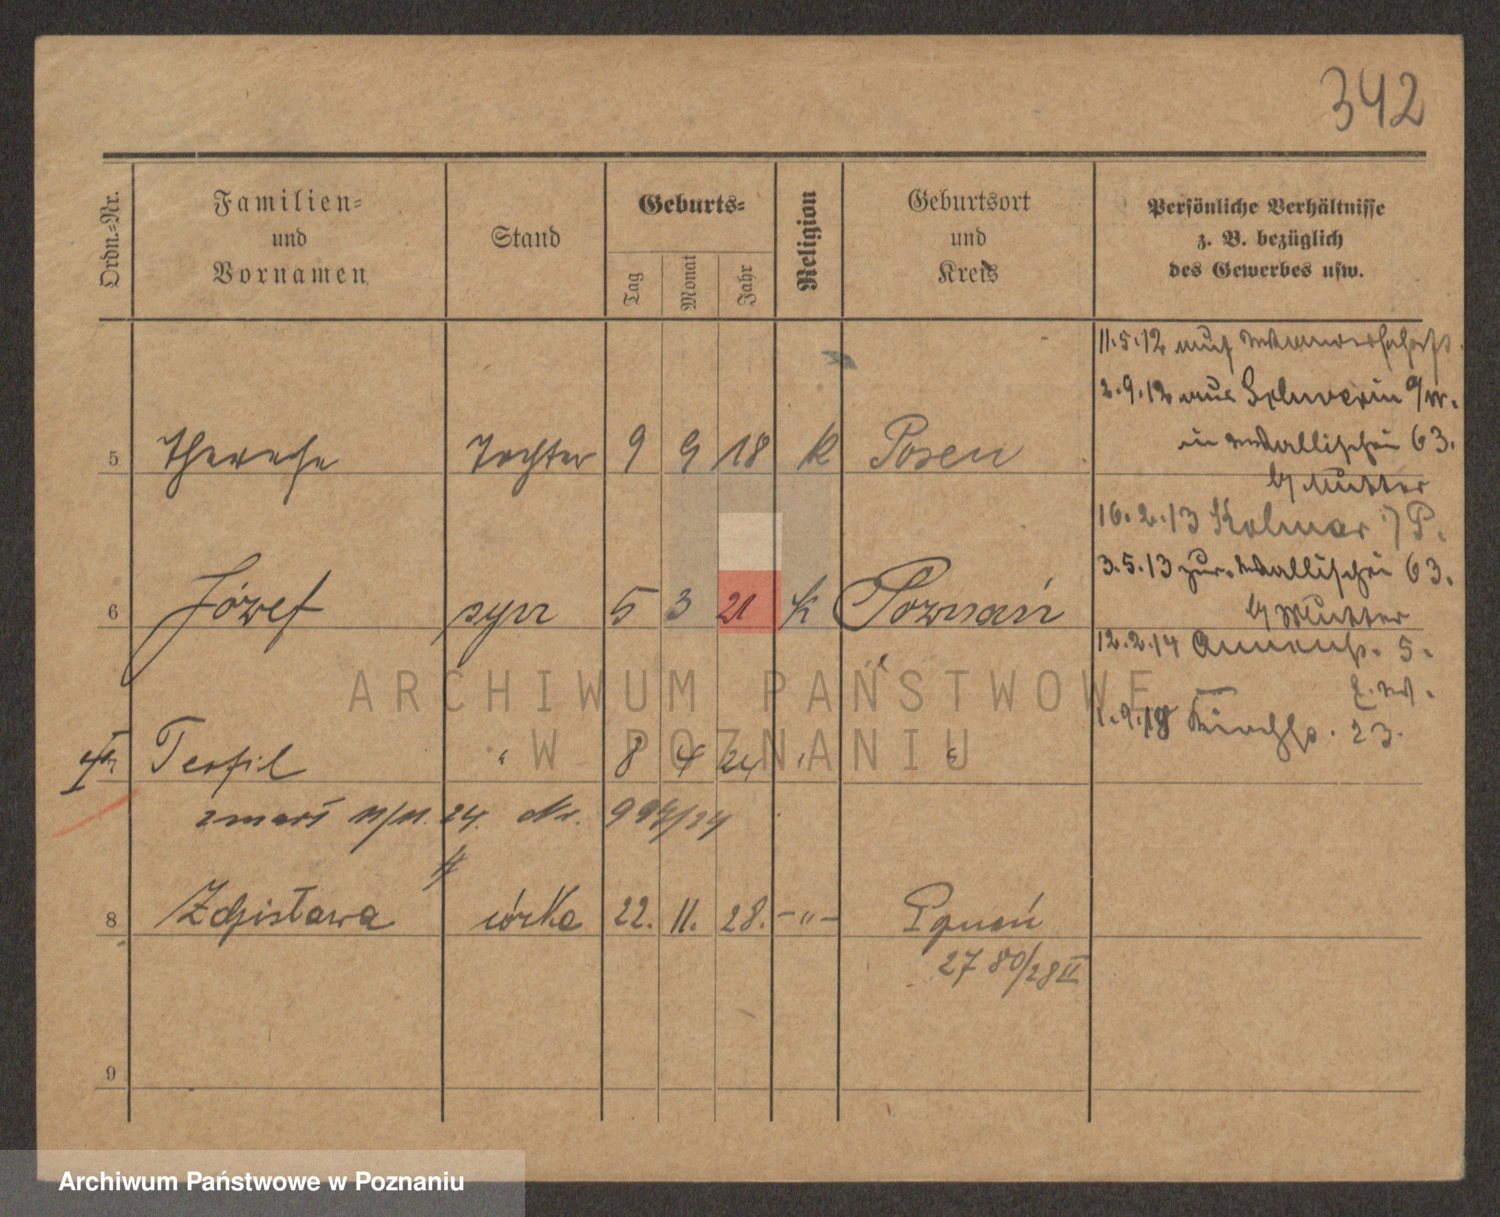 342
Ordn.-Nr.
Familien- und Vornamen
Stand
Geburts-
Tag
Monat
Jahr
Religion
Geburtsort und Kreis
Persönliche Verhältnisse
z. B. bezüglich
des Gewerbes usw.
11.5.12 auf Wanderschaft.
2.9.12 aus Schwerin a/W.
in Wallischei 63.
b/ Mutter
5 Therese Tochter 9 9 18 k Posen
16.2.13 Kolmar i/P.
3.5.13 zur. Wallischei 63.
b/ Mutter
6 Józef syn 5 3 21 k Poznań
12.2.14 5.
1.9.18 23.
7 Teofil " 8 4 24 " "
zmarł 11/11. 24. Nr. 994/24
8 Zdzisława córka 22. 11. 28. -"- Poznań
2780/28 II
9
ARCHIWUM PAŃSTWOWE
W POZNANIU
Archiwum Państwowe w Poznaniu